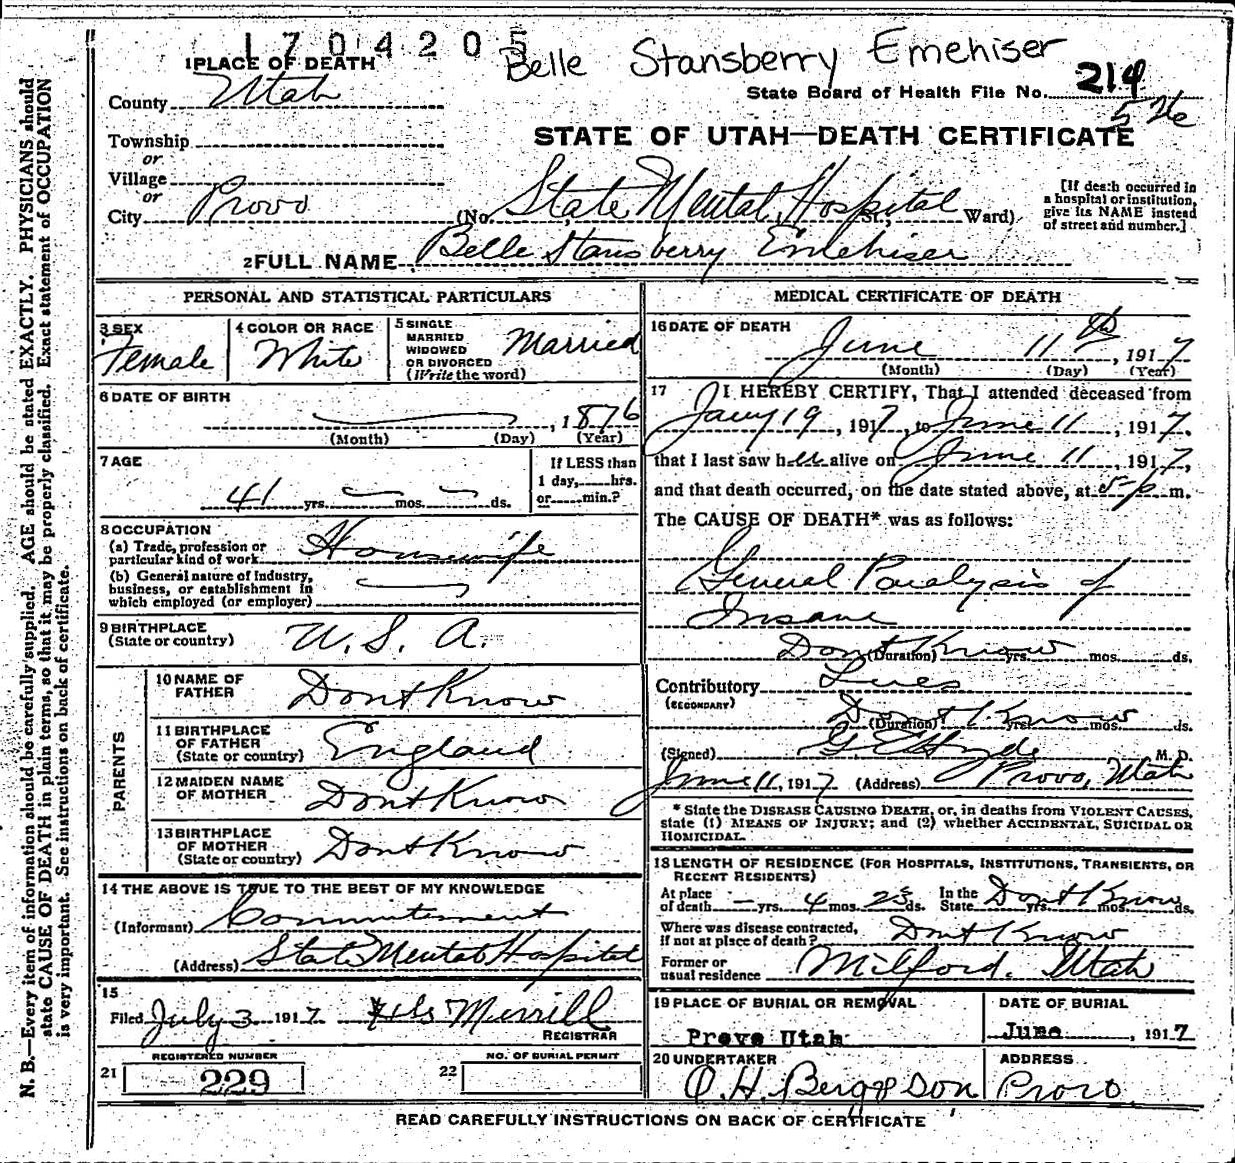 1704205
Belle Stansberry Emehiser
1 PLACE OF DEATH
County Utah
State Board of Health File No. 214
Township
or
STATE OF UTAH—DEATH CERTIFICATE
Village
or
City Provo (No. State Mental Hospital St., Ward)
[If death occurred in a hospital or institution, give its NAME instead of street and number.]
2 FULL NAME Belle Stansberry Emehiser
PERSONAL AND STATISTICAL PARTICULARS
3 SEX Female
4 COLOR OR RACE White
5 SINGLE MARRIED WIDOWED OR DIVORCED (Write the word) Married
6 DATE OF BIRTH
, 1876
(Month) (Day) (Year)
7 AGE
41 yrs. mos. ds.
If LESS than 1 day, hrs. or min.?
8 OCCUPATION
(a) Trade, profession or particular kind of work Housewife
(b) General nature of industry, business, or establishment in which employed (or employer)
9 BIRTHPLACE (State or country) U. S. A.
PARENTS
10 NAME OF FATHER Dont Know
11 BIRTHPLACE OF FATHER (State or country) England
12 MAIDEN NAME OF MOTHER Dont Know
13 BIRTHPLACE OF MOTHER (State or country) Dont Know
14 THE ABOVE IS TRUE TO THE BEST OF MY KNOWLEDGE
(Informant) Committement
(Address) State Mental Hospital
15
Filed July 3 1917 Merrill
REGISTRAR
21 REGISTERED NUMBER 229
22 NO. OF BURIAL PERMIT
MEDICAL CERTIFICATE OF DEATH
16 DATE OF DEATH
June 11th, 1917
(Month) (Day) (Year)
17 I HEREBY CERTIFY, That I attended deceased from
Jany 19, 1917, to June 11, 1917,
that I last saw her alive on June 11, 1917,
and that death occurred, on the date stated above, at 5 p m.
The CAUSE OF DEATH* was as follows:
General Paralysis of
Insane
Dont Know (Duration) yrs. mos. ds.
Contributory Lues
(SECONDARY)
Dont Know (Duration) yrs. mos. ds.
(Signed) G E Hyde M. D.
June 11, 1917 (Address) Provo, Utah
* State the DISEASE CAUSING DEATH, or, in deaths from VIOLENT CAUSES,
state (1) MEANS OF INJURY; and (2) whether ACCIDENTAL, SUICIDAL OR
HOMICIDAL.
18 LENGTH OF RESIDENCE (FOR HOSPITALS, INSTITUTIONS, TRANSIENTS, OR
RECENT RESIDENTS)
At place of death - yrs. 4 mos. 23 ds. In the State Dont Know yrs. mos. ds.
Where was disease contracted, if not at place of death? Dont Know
Former or usual residence Milford. Utah
19 PLACE OF BURIAL OR REMOVAL
Provo Utah
DATE OF BURIAL
June, 1917
20 UNDERTAKER
O. H. Berggson
ADDRESS
Provo.
READ CAREFULLY INSTRUCTIONS ON BACK OF CERTIFICATE
N. B.—Every item of information should be carefully supplied. AGE should be stated EXACTLY. PHYSICIANS should
state CAUSE OF DEATH in plain terms, so that it may be properly classified. Exact statement of OCCUPATION
is very important. See instructions on back of certificate.